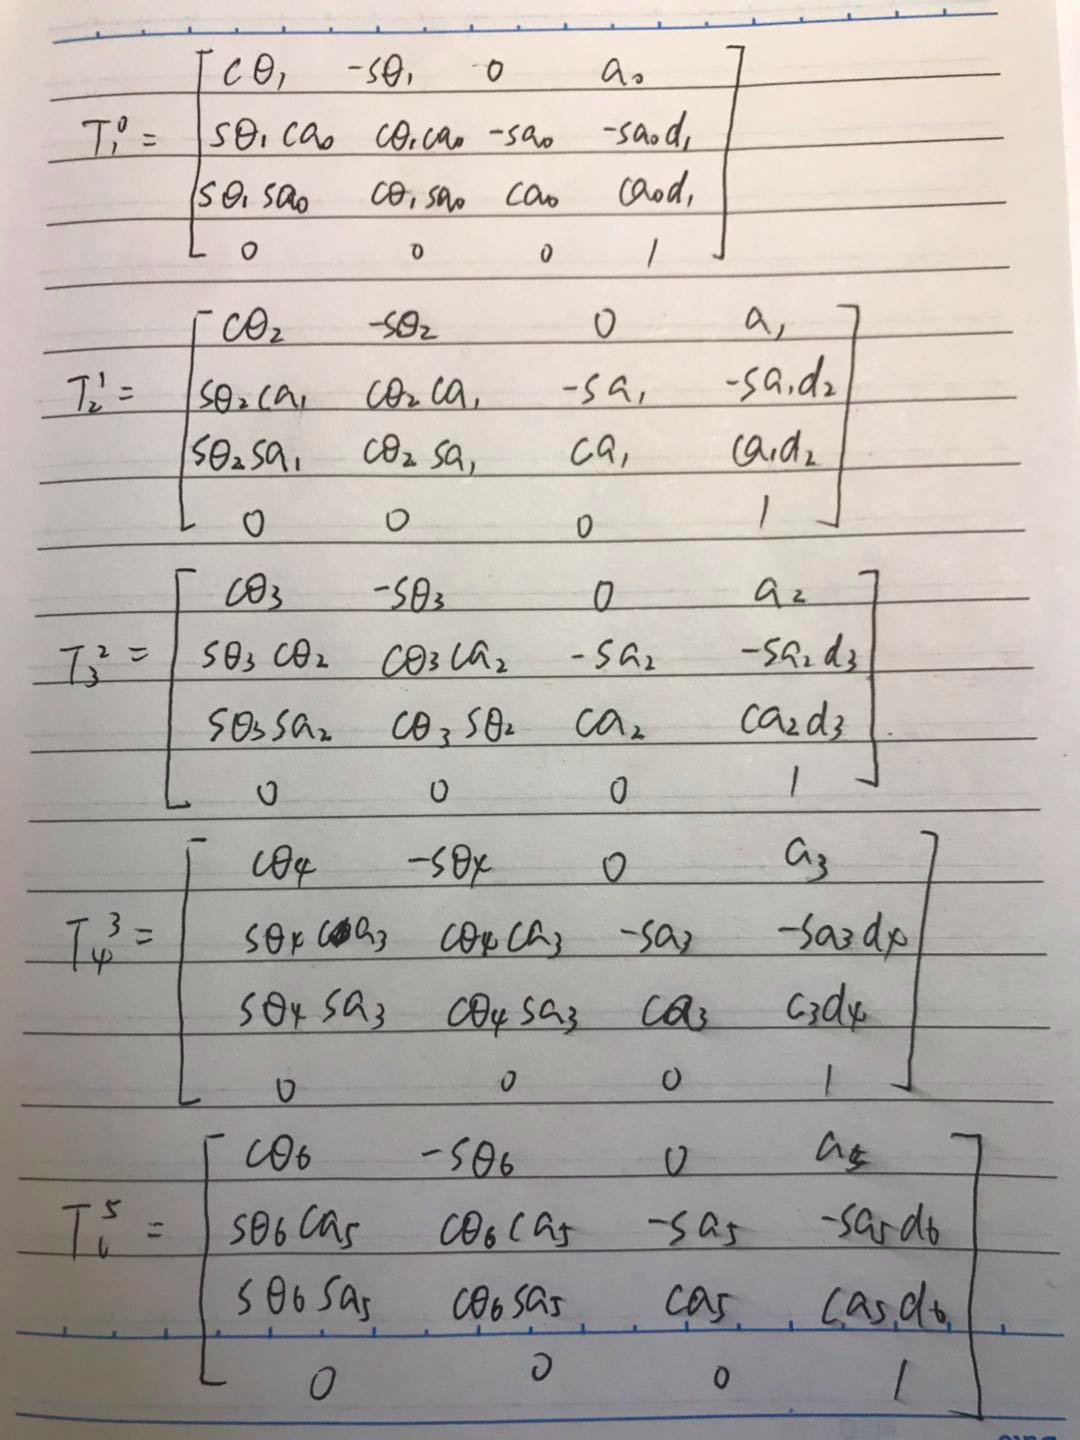 cθ₁ -sθ₁ 0 a₀
T₁⁰ = sθ₁ca₀ cθ₁ca₀ -sa₀ -sa₀d₁
sθ₁sa₀ cθ₁sa₀ ca₀ ca₀d₁
0 0 0 1
cθ₂ -sθ₂ 0 a₁
T₂¹ = sθ₂ca₁ cθ₂ca₁ -sa₁ -sa₁d₂
sθ₂sa₁ cθ₂sa₁ ca₁ ca₁d₂
0 0 0 1
cθ₃ -sθ₃ 0 a₂
T₃² = sθ₃cθ₂ cθ₃ca₂ -sa₂ -sa₂d₃
sθ₃sa₂ cθ₃sθ₂ ca₂ ca₂d₃
0 0 0 1
cθ₄ -sθ₄ 0 a₃
T₄³ = sθ₄ca₃ cθ₄ca₃ -sa₃ -sa₃d₄
sθ₄sa₃ cθ₄sa₃ ca₃ c₃d₄
0 0 0 1
cθ₆ -sθ₆ 0 a₅
T₆⁵ = sθ₆ca₅ cθ₆ca₅ -sa₅ -sa₅d₆
sθ₆sa₅ cθ₆sa₅ ca₅ ca₅d₆
0 0 0 1